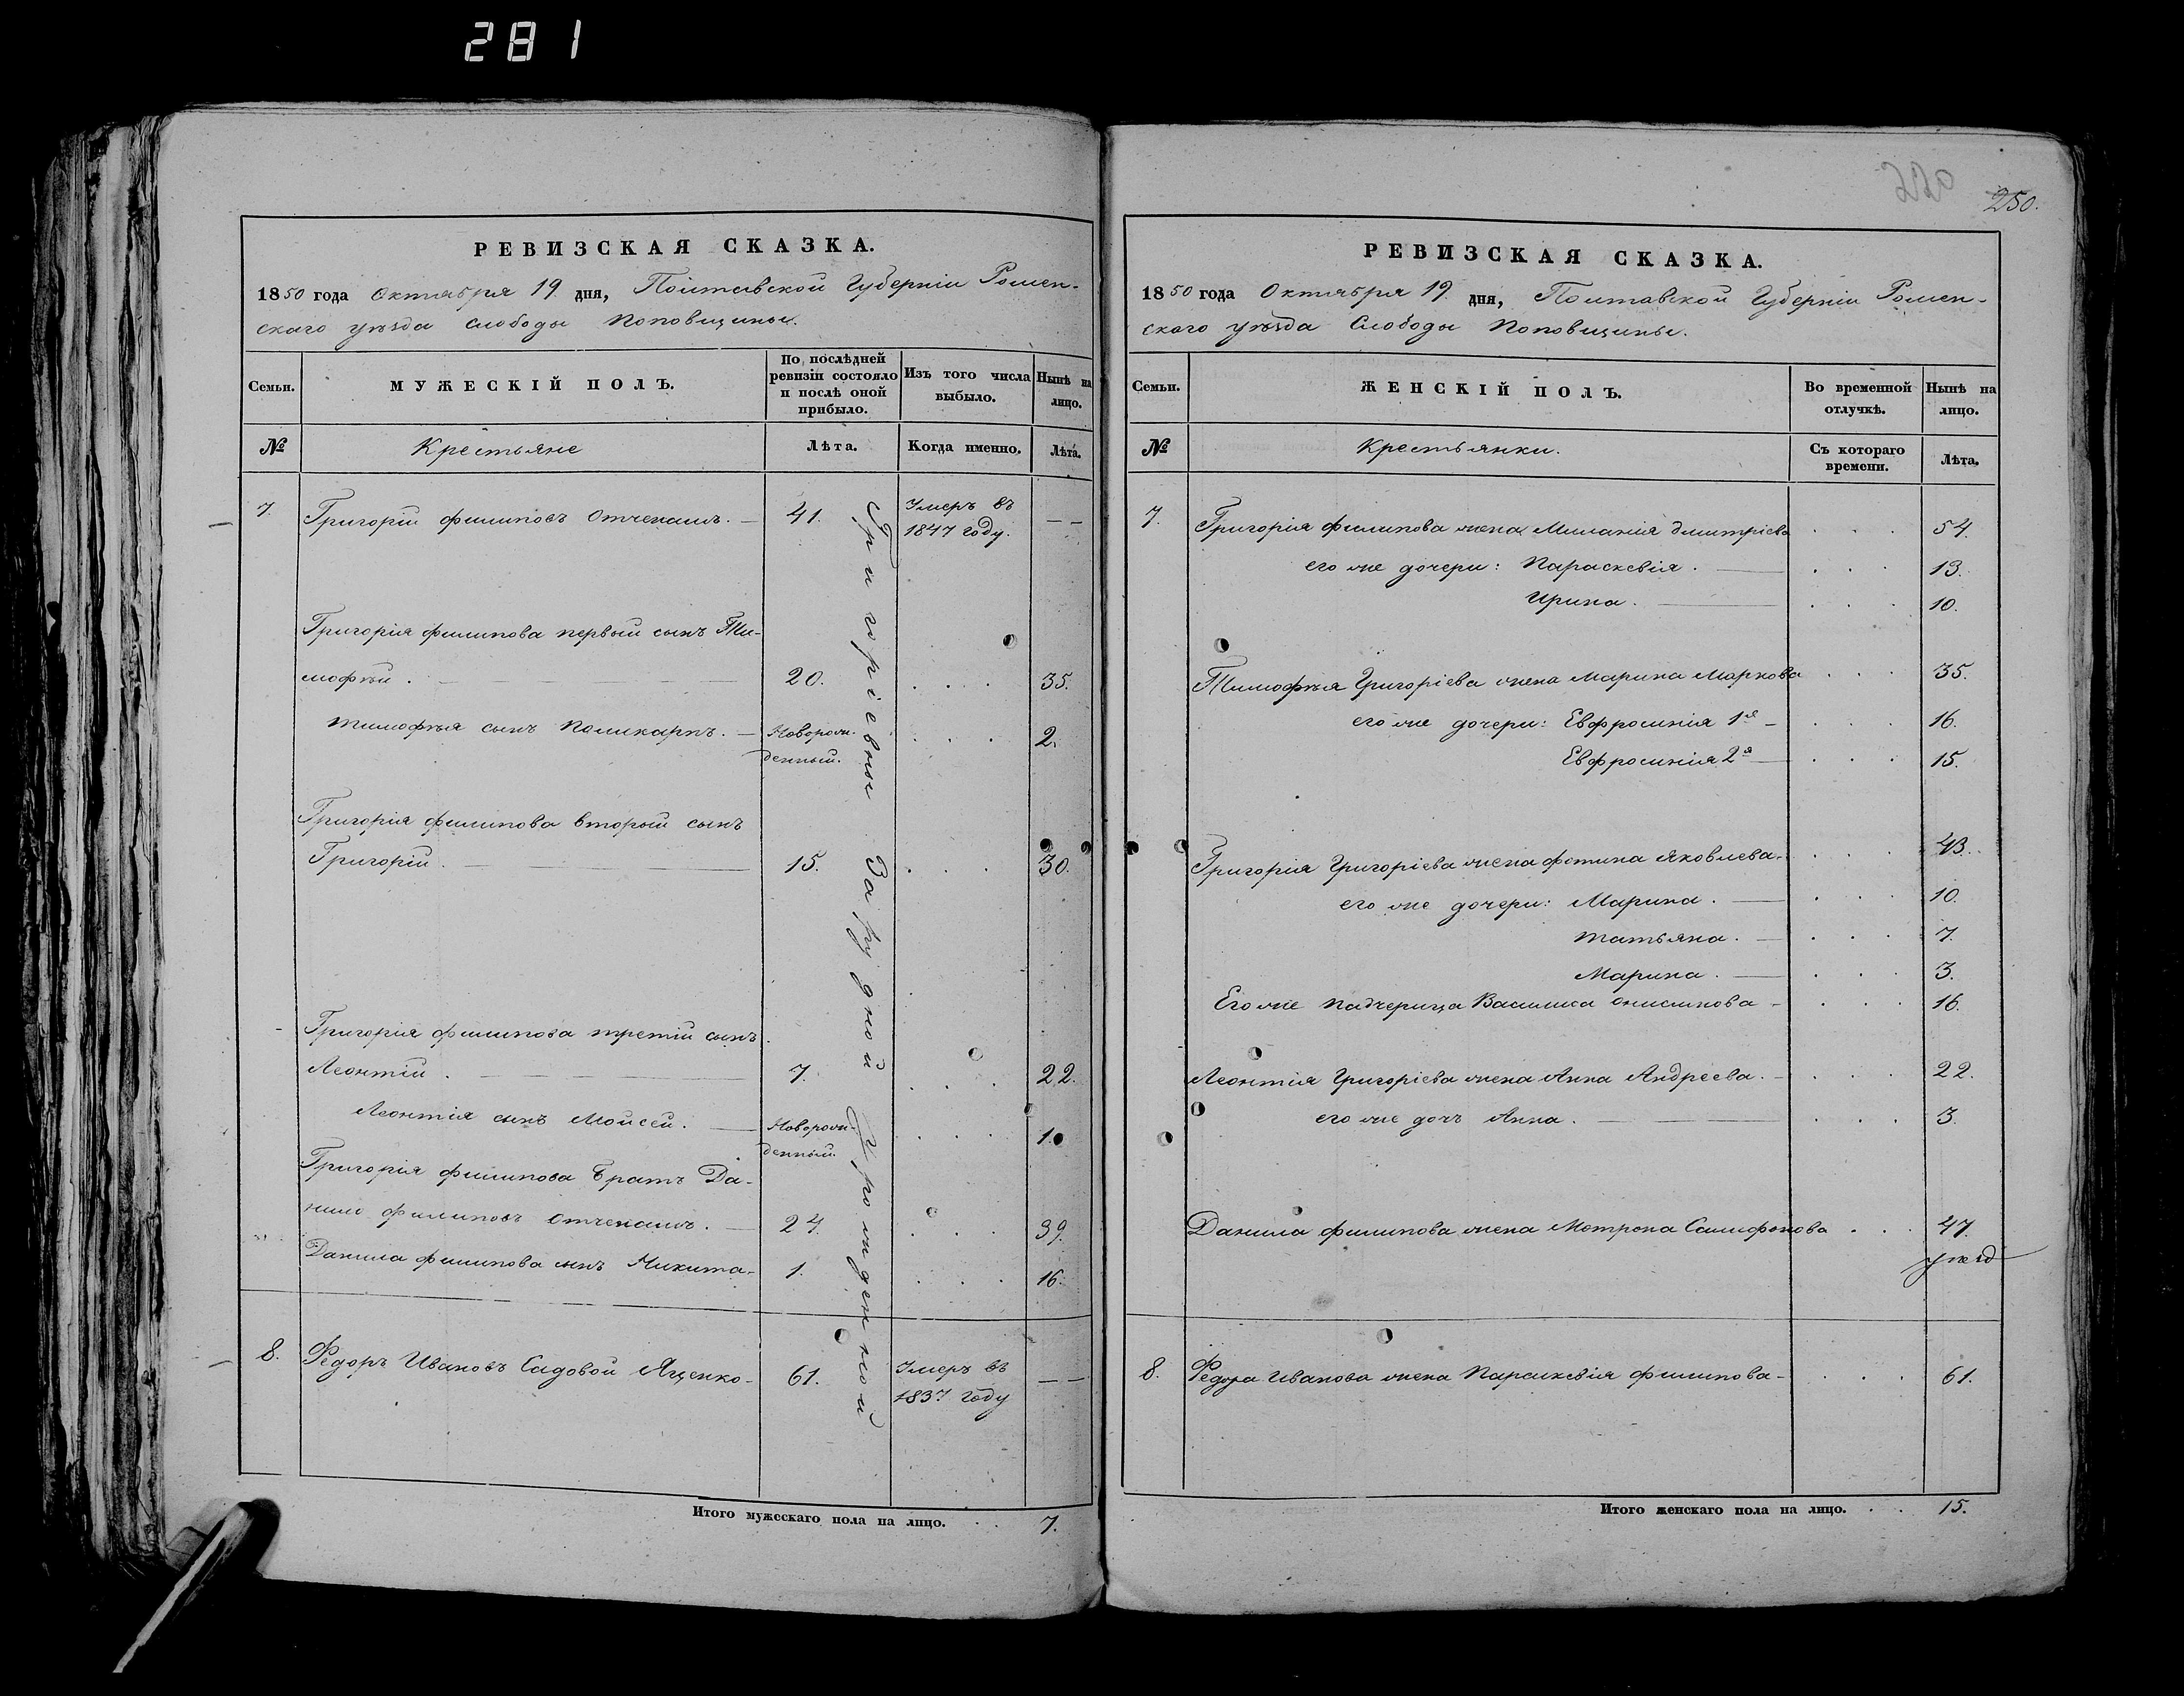 281
250.
РЕВИЗСКАЯ СКАЗКА.
1850 года Октября 19 дня, Полтавской Губерніи Ромен-
скаго уѣзда слободы Поповщины.
Семьи.
МУЖЕСКІЙ ПОЛЪ.
По послѣдней ревизіи состояло и послѣ оной прибыло.
Изъ того числа выбыло.
Нынѣ на лицо.
№
Крестьяне
Лѣта.
Когда именно.
Лѣта.
7. Григорій филиповъ Отченашъ. 41. Умеръ въ
1847 году.
Григорія филипова первый сынъ Ти-
мофѣй. 20. . . . 35.
тимофѣя сынъ Поликарпъ. Новорож-
денный. . . . 2.
Григорія филипова вторый сынъ
Григорій. 15. . . . 30.
Григорія филипова третій сынъ
Леонтій. 7. . . . 22.
Леонтія сынъ Мойсей. Новорож-
денный. . . . 1.
Григорія филипова братъ Да-
нило филиповъ Отченашъ. 24. . . . 39.
Данила филипова сынъ Никита 1. . . . 16.
8. Федоръ Ивановъ Садовой Яценко 61. Умеръ въ
1837 году
Григоріевны Зарудной Урожденной
Итого мужескаго пола на лицо. . . 7.
РЕВИЗСКАЯ СКАЗКА.
1850 года Октября 19 дня, Полтавской Губерніи Ромен-
скаго уѣзда Слободы Поповщины.
Семьи.
ЖЕНСКІЙ ПОЛЪ.
Во временной отлучкѣ.
Нынѣ на лицо.
№
Крестьянки.
Съ котораго времени.
Лѣта.
7. Григорія филипова жена Миланія дмитріева . . . 54.
его же дочери: Параскевія. . . . 13.
Ирина. . . . 10.
Тимофѣя Григоріева жена Марина Маркова . . . 35.
его же дочери: Евфросинія 1я . . . 16.
Евфросинія 2я . . . 15.
Григорія Григоріева жена фотина Яковлева . . . 43.
его же дочери: Марина. . . . 10.
татьяна. . . . 7.
Марина. . . . 3.
Его же падчерица Василиса онисимова . . . 16.
Леонтія Григоріева жена Анна Андреева. . . . 22.
его же дочь Анна. . . . 3.
Данила филипова жена Мотрона Самофонова . . . 47.
уѣзд
8. Федора Иванова жена Параскевія филипова . . . 61.
Итого женскаго пола на лицо. . . 15.